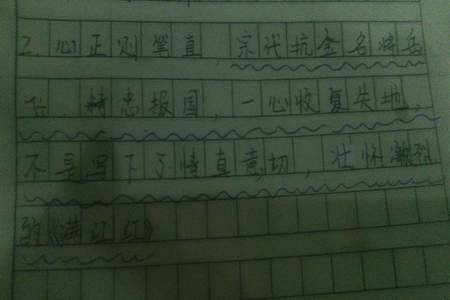 2 心正则笔直，宋代抗金名将岳
飞，精忠报国，一心收复失地，
不是写下了情真意切，壮怀激烈
的《满江红》